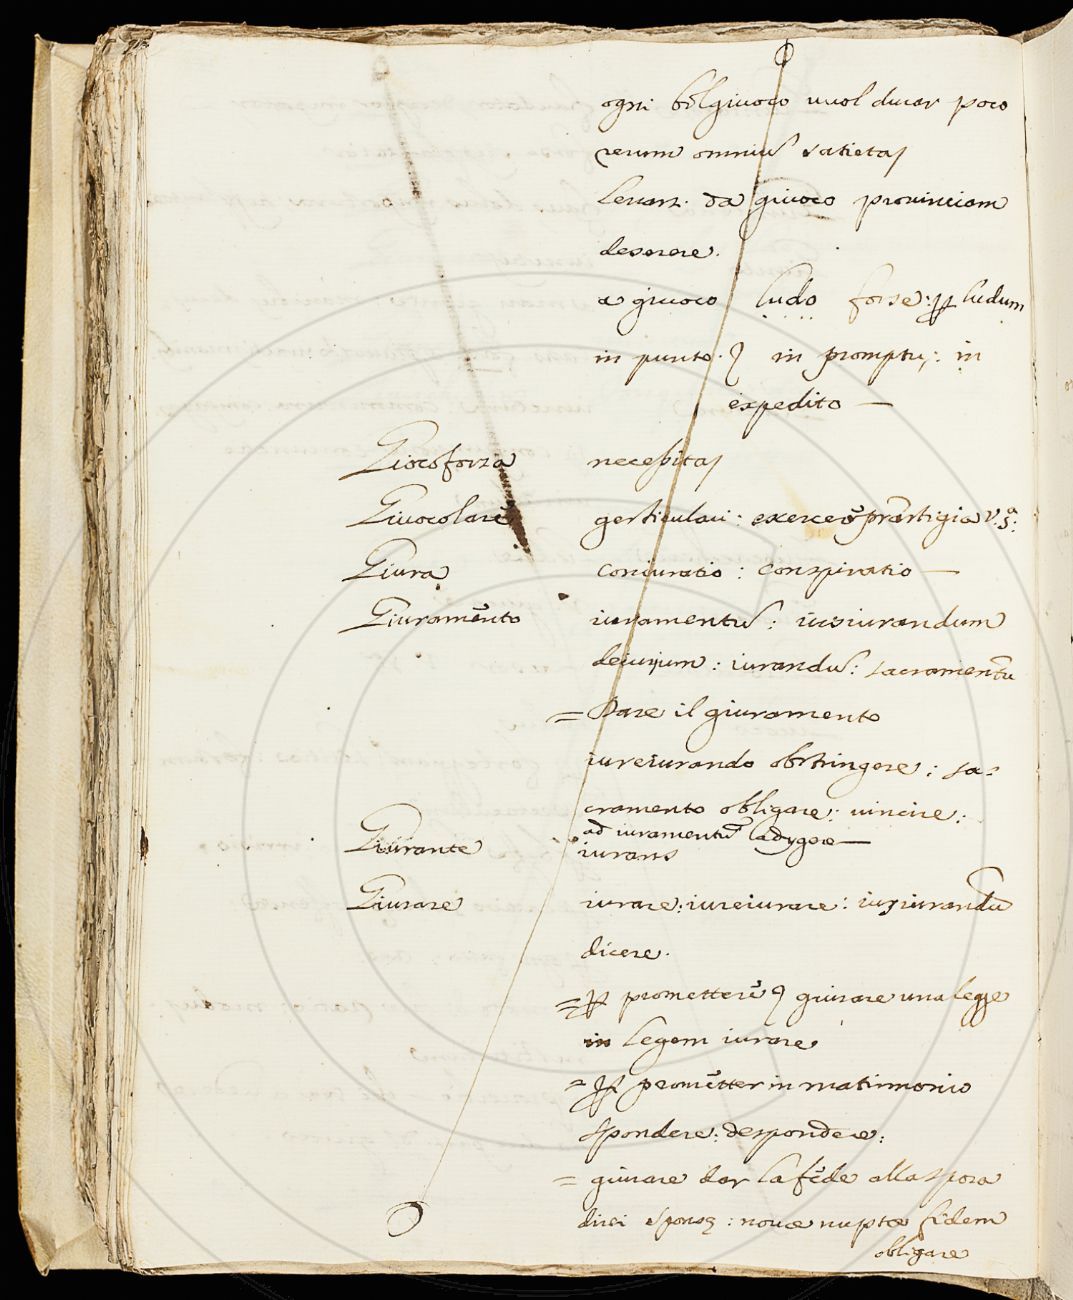 ogni bel giuoco vuol durar poco
rerum omniũ satietas
Levars. da giuoco provinciam
deserere.
a giuoco ludo forse: ꝑ ludum
in punto. in promptu: in
expedito —
Giocoforza necessitas
Giuocolare gesticulari: exercere præstigia v.s.ª
Giura coniuratio: conspiratio —
Giuramento iuramentũ: iusiurandum
deiurium: iurandũ: sacramentũ
= Dare il giuramento
iureiurando obstringere: sa-
cramento obligare: vincire:
ad iuramentũ adigere —
Giurante iurans
Giurare iurare: iureiurare: iusiurandũ
dicere.
= ꝑ promettere giurare una legge
in legem iurare
= ꝑ prometter in matrimonio
spondere: despondere:
= giurare dar la fede alla sposa
dici sponsus: novæ nuptæ fidem
obligare